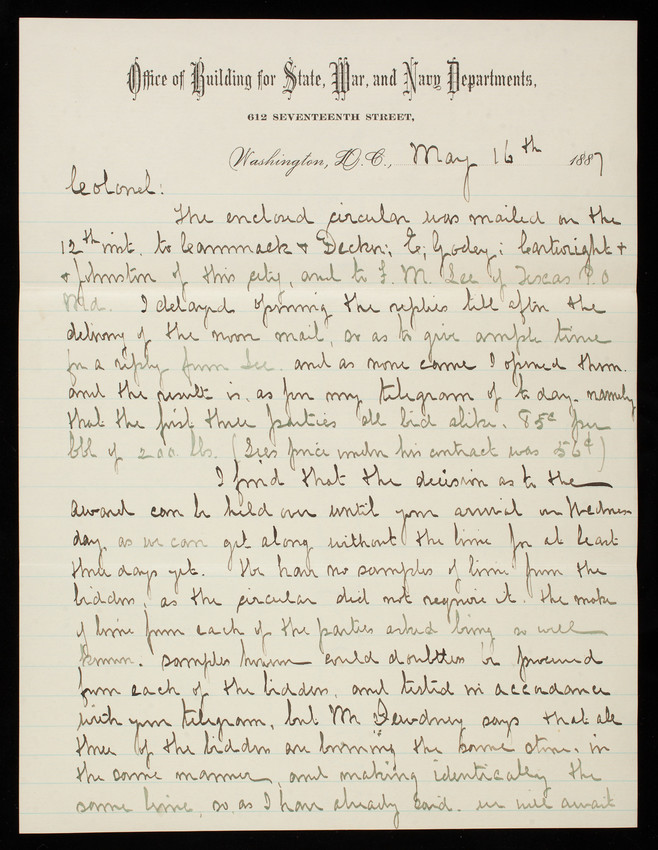 Office of Building for State, War, and Navy Departments,
612 SEVENTEENTH STREET,
Washington, D.C., May 16th 1887
Colonel:
The enclosed circular was mailed on the
12th inst. to Cammack & Decker; E. Godey; Cartwright &
& Johnston of this city, and to F. M. Lee of Texas P.O
Md. I delayed opening the replies till after the
delivery of the noon mail, so as to give ample time
for a reply from Lee. and as none came I opened them.
and the result is, as per my telegram of to day. namely
that the first three parties all bid alike. 85c per
bbl of 200 lbs. (Lee's price under his contract was 56¢)
I find that the decision as to the
award can be held over until your arrival on Wednes-
day, as we can get along without the lime for at least
three days yet. We have no samples of lime from the
bidders, as the circular did not require it. the make
of lime from each of the parties asked being so well
known. samples however could doubtless be procured
from each of the bidders, and tested in accordance
with your telegram, but Mr Dewdney says that all
three of the bidders are burning the same stone, in
the same manner, and making identically the
same lime, so, as I have already said. we will await